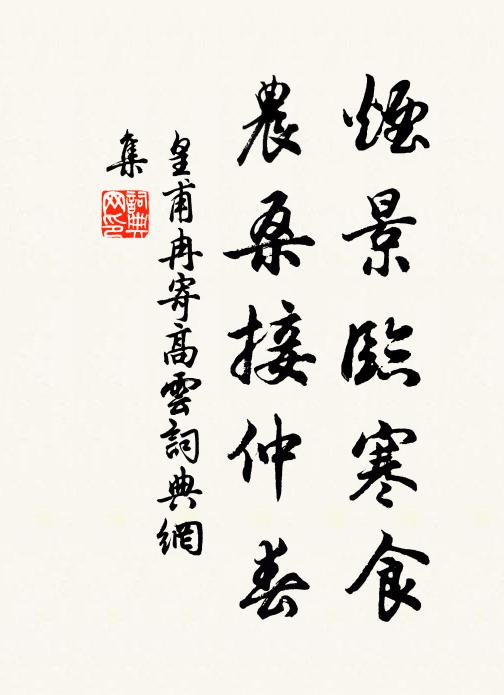 煙景臨寒食
農桑接仲春
皇甫冉寄高雲詞典網
集
詞典
网印